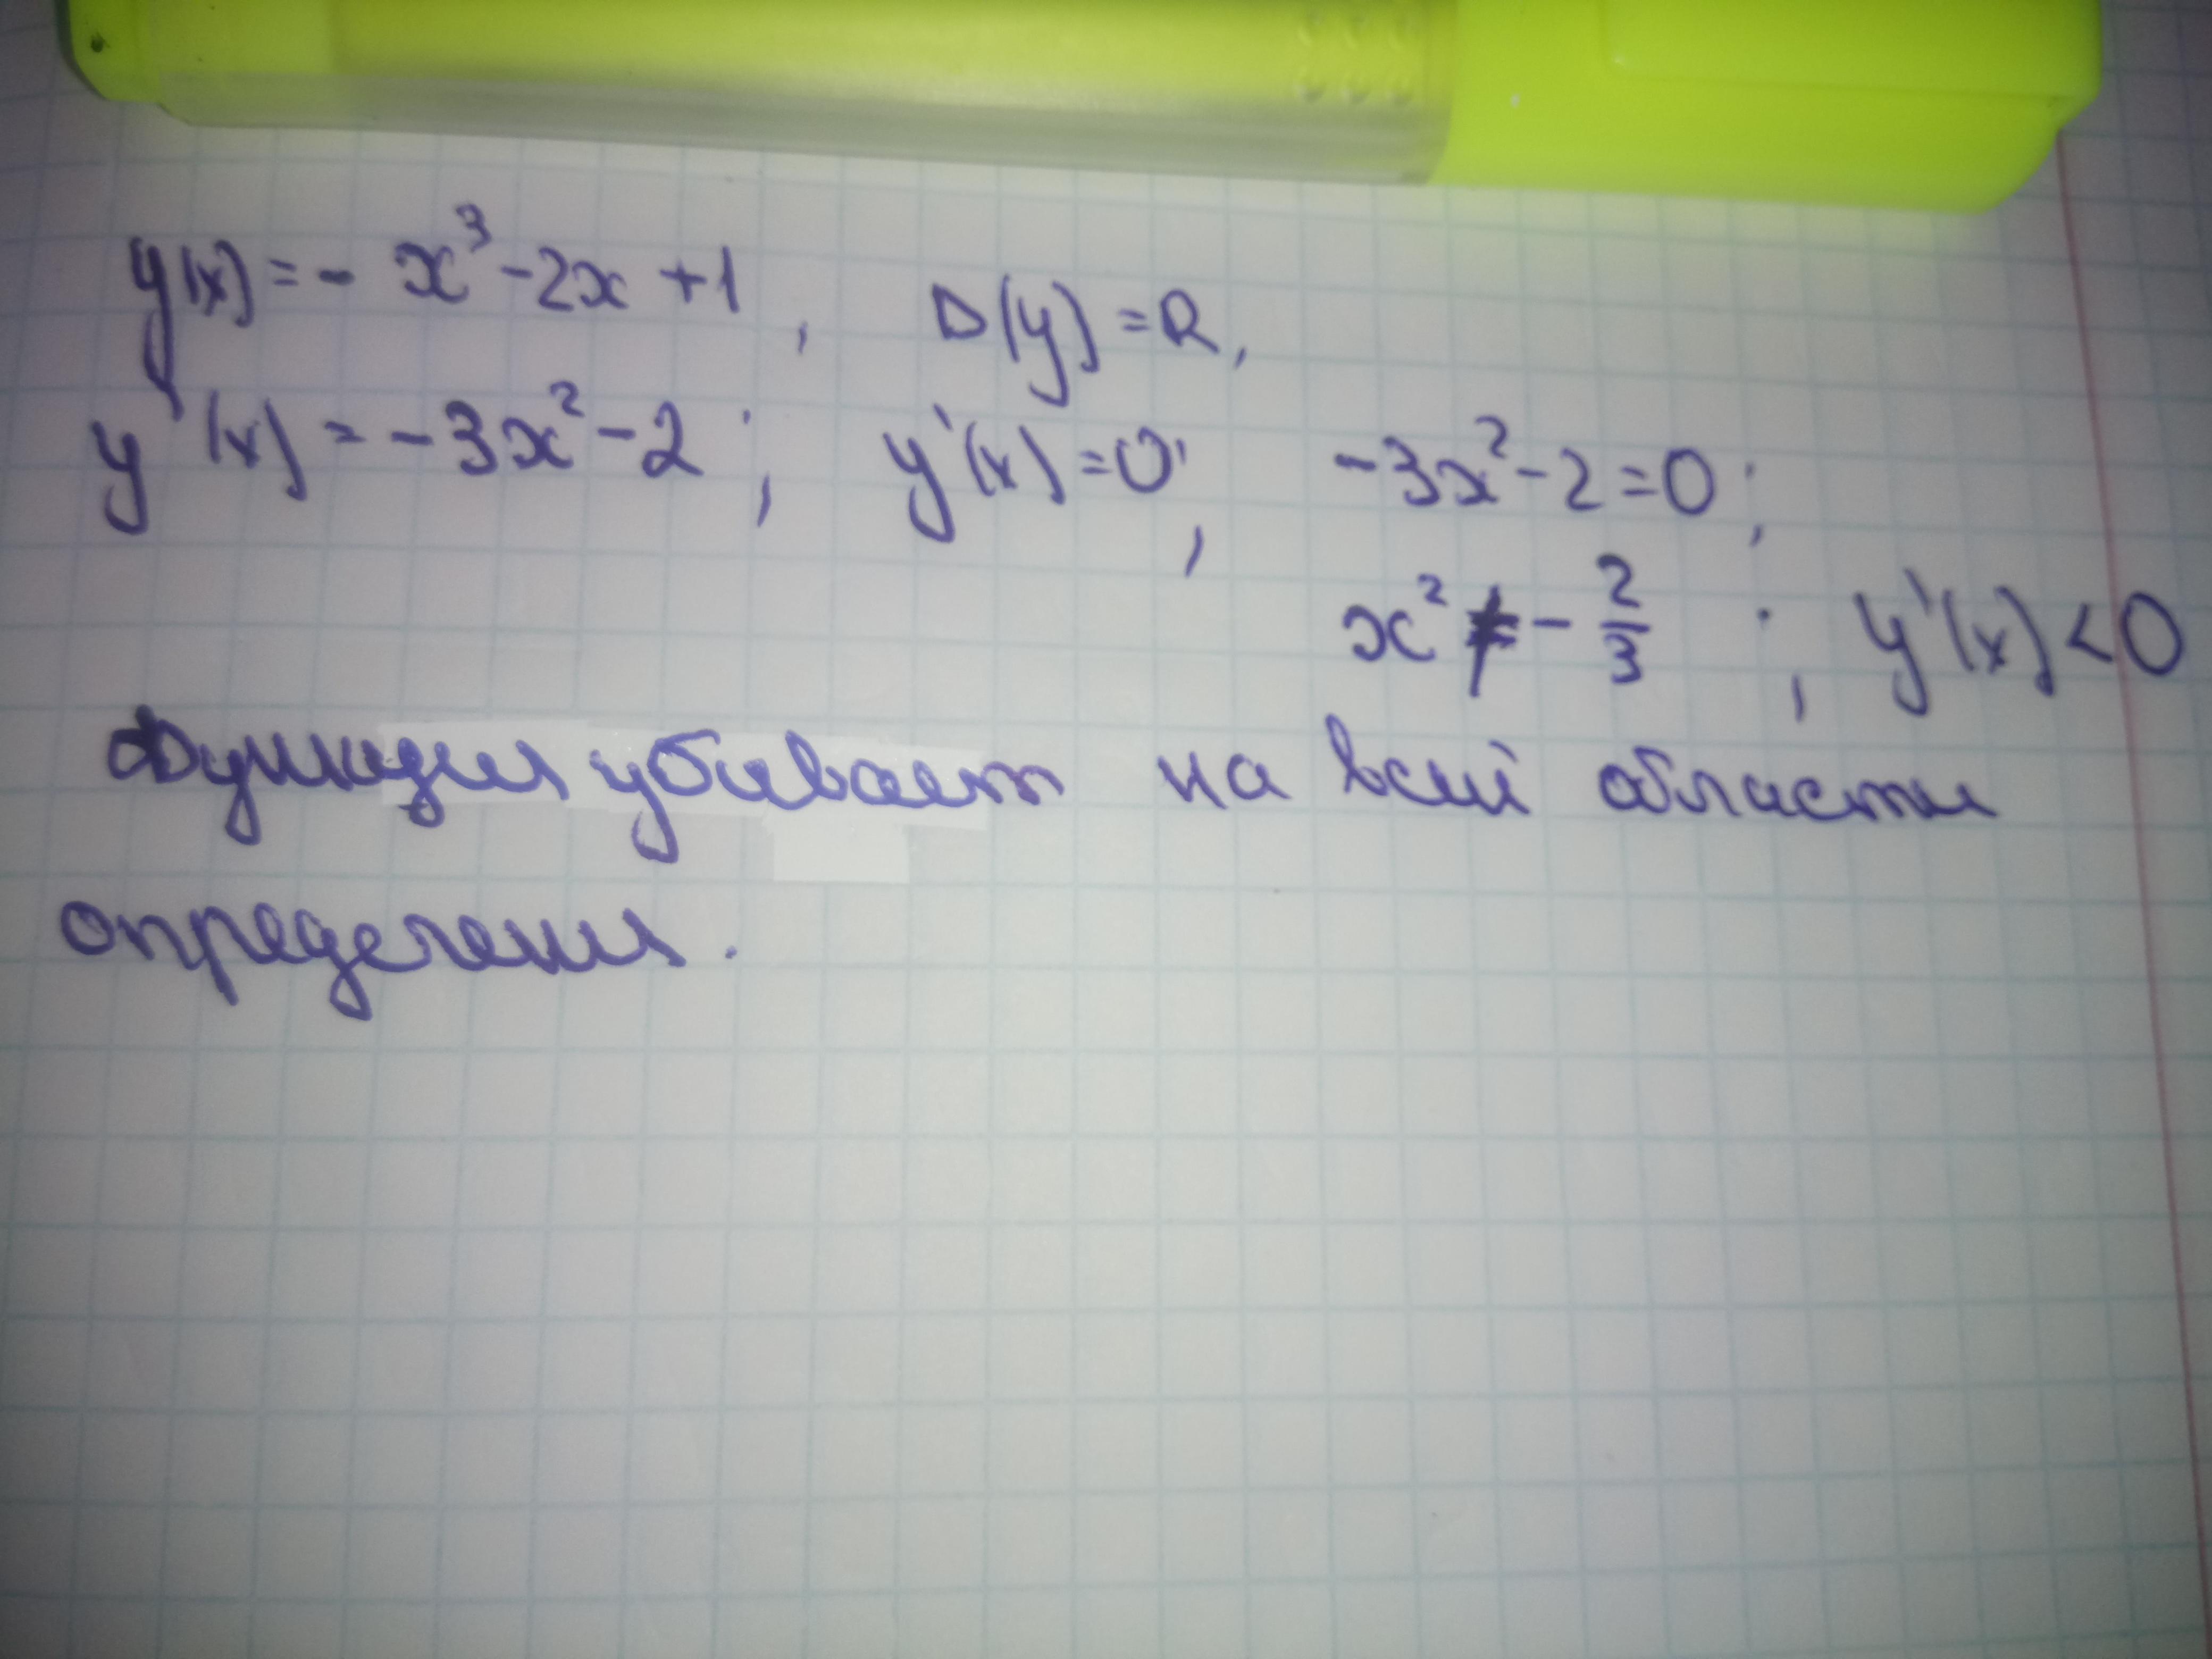 y(x) = - x³ - 2x + 1, D(y) = R,
y'(x) = -3x² - 2; y'(x) = 0; -3x² - 2 = 0;
x² ≠ - 2/3; y'(x) < 0
Функция убывает на всей области
определения.